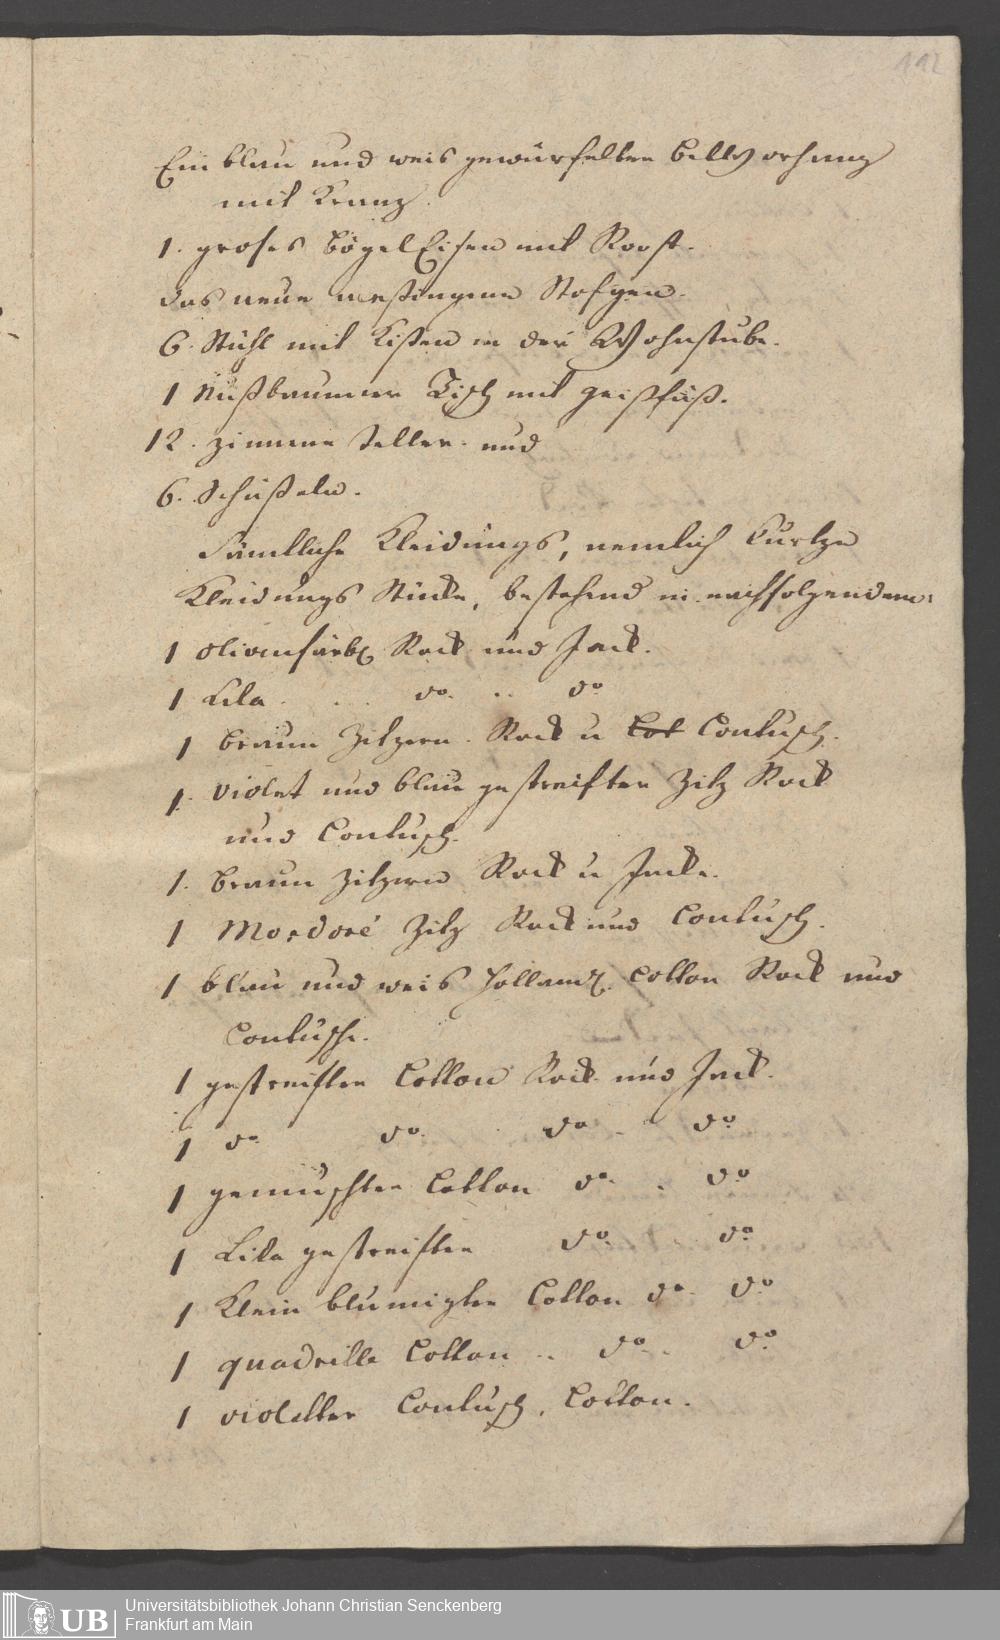 112
Ein blau und weis gewürfelten bettVorhang
mit Kranz.
1. groses bögelEisen mit Roost.
das neue messingene Stofgen.
6. Stühl mit Kißen in der Wohnstube.
1 Nußbaumner Tisch mit geißfüß.
12. zinnene Teller. und
6. Schüßeln.
Sämtliche Kleidungs, nemlich Kurtze
Kleidungs Stücke, bestehend in nachfolgendem:
1 olivenfarb Rock und Jack.
1 Lila . . . do. .. do
1 braun zitzern. Rock u Cot Contusch.
1. violet und blau gestreifter Zitz Rock
und Contusch.
1. braun zitzern Rock u Jacke.
1 Mordoré Zitz Rock und Contusch.
1 blau und weis holländ. Cotton Rock und
Contusche.
1 gestreiften Cotton Rock und Jack.
1 do. do. do. do
1 gemuschten Cotton do. . do
1 Lila gestreiften do. . do
1 Klein blumigten Cotton do. do
1 quadrille Cotton .. do. . do
1 violetter Contusch. Cotton.
UB
Universitätsbibliothek Johann Christian Senckenberg
Frankfurt am Main